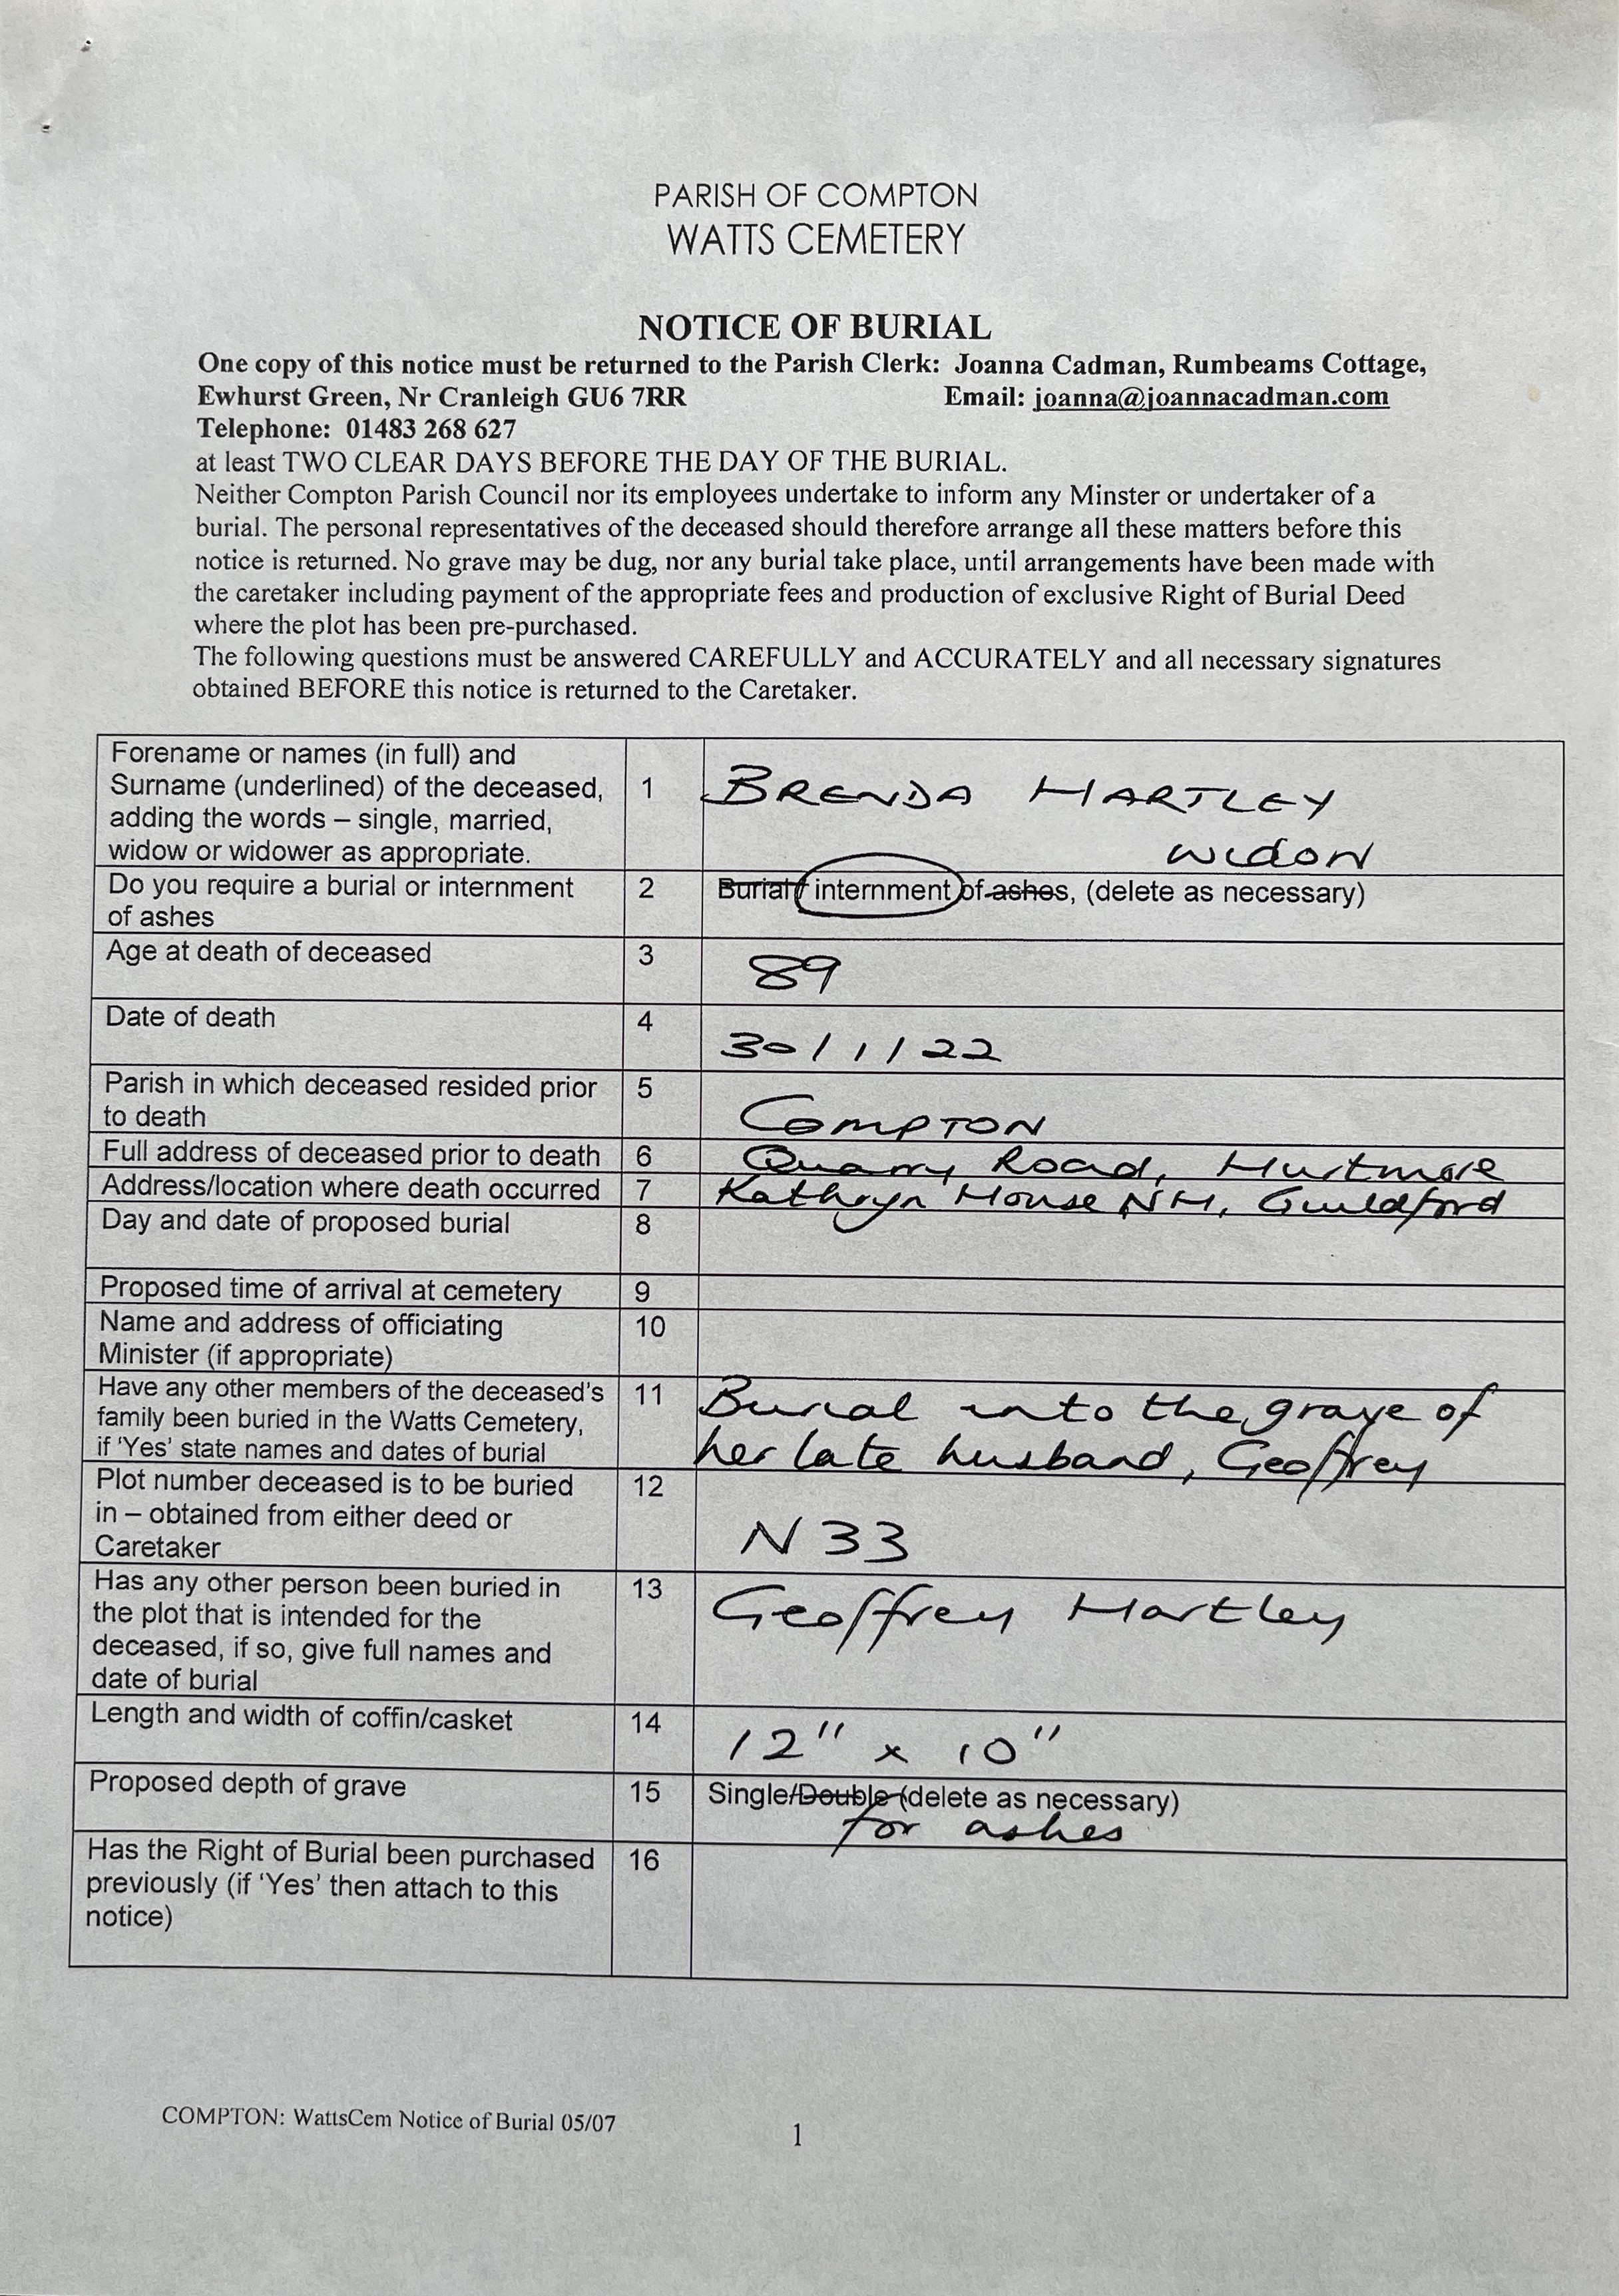 PARISH OF COMPTON
WATTS CEMETERY
NOTICE OF BURIAL
One copy of this notice must be returned to the Parish Clerk: Joanna Cadman, Rumbeams Cottage,
Ewhurst Green, Nr Cranleigh GU6 7RR Email: joanna@joannacadman.com
Telephone: 01483 268 627
at least TWO CLEAR DAYS BEFORE THE DAY OF THE BURIAL.
Neither Compton Parish Council nor its employees undertake to inform any Minster or undertaker of a
burial. The personal representatives of the deceased should therefore arrange all these matters before this
notice is returned. No grave may be dug, nor any burial take place, until arrangements have been made with
the caretaker including payment of the appropriate fees and production of exclusive Right of Burial Deed
where the plot has been pre-purchased.
The following questions must be answered CAREFULLY and ACCURATELY and all necessary signatures
obtained BEFORE this notice is returned to the Caretaker.
Forename or names (in full) and
Surname (underlined) of the deceased,
adding the words – single, married,
widow or widower as appropriate.
1
BRENDA HARTLEY
widow
Do you require a burial or internment
of ashes
2
Burial / internment of ashes, (delete as necessary)
Age at death of deceased
3
89
Date of death
4
30/1/22
Parish in which deceased resided prior
to death
5
COMPTON
Full address of deceased prior to death
6
Quarry Road, Hurtmore
Address/location where death occurred
7
Kathryn House NH, Guildford
Day and date of proposed burial
8
Proposed time of arrival at cemetery
9
Name and address of officiating
Minister (if appropriate)
10
Have any other members of the deceased's
family been buried in the Watts Cemetery,
if 'Yes' state names and dates of burial
11
Burial into the grave of
her late husband, Geoffrey
Plot number deceased is to be buried
in – obtained from either deed or
Caretaker
12
N33
Has any other person been buried in
the plot that is intended for the
deceased, if so, give full names and
date of burial
13
Geoffrey Hartley
Length and width of coffin/casket
14
12" x 10"
Proposed depth of grave
15
Single/Double (delete as necessary)
for ashes
Has the Right of Burial been purchased
previously (if 'Yes' then attach to this
notice)
16
COMPTON: WattsCem Notice of Burial 05/07
1